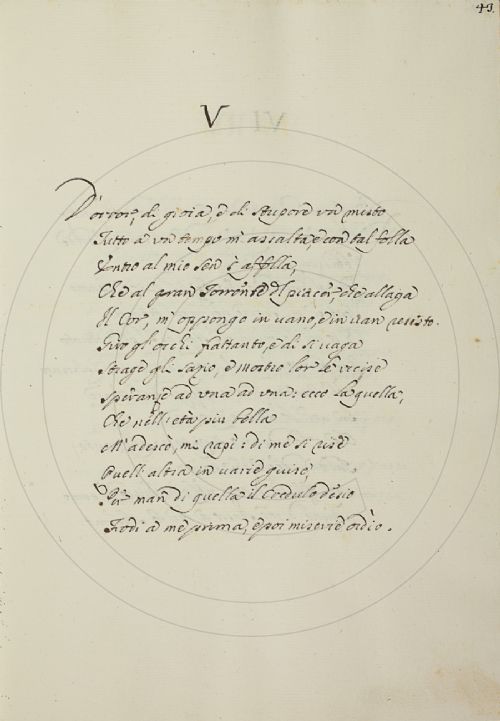 43.
V
D'orror, di gioia, e di stupore un misto
Tutto a un tempo m'assalta, e con tal folla
Entro al mio sen s'affolla,
Che al gran Torrente del piacer, che allaga
Il Cor, m'oppongo in vano, e in van resisto.
Giro gl'occhi frattanto, e di sì vaga
Strage gli sazio, e mostro lor le recise
Speranze ad una ad una: ecco là quella,
Che nell'età più bella
M'adescò, mi rapì: di me si rise
Quell'altra in varie guise,
Per man di quella il Credulo desio
Frodi a me prima, e poi miserie ordìo.